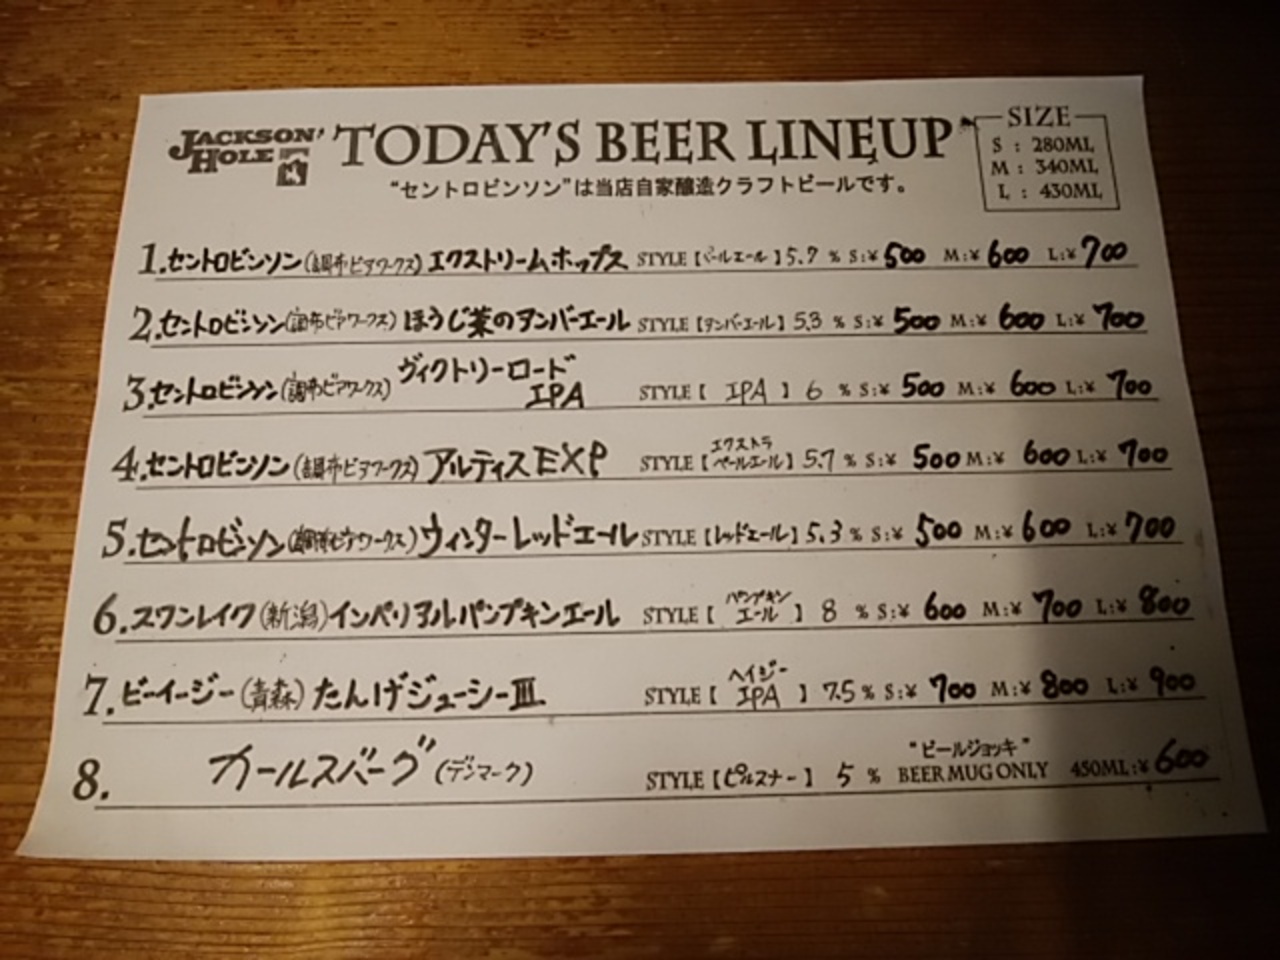 JACKSON' HOLE
TODAY'S BEER LINEUP
"セントロビンソン"は当店自家醸造クラフトビールです。
SIZE
S : 280ML
M : 340ML
L : 430ML
1. セントロビンソン(調布ビアワークス) エクストリームホップス STYLE【ペールエール】5.7 % S:¥ 500 M:¥ 600 L:¥ 700
2. セントロビンソン(調布ビアワークス) ほうじ茶のアンバーエール STYLE【アンバーエール】5.3 % S:¥ 500 M:¥ 600 L:¥ 700
3. セントロビンソン(調布ビアワークス) ヴィクトリーロード IPA STYLE【 IPA 】6 % S:¥ 500 M:¥ 600 L:¥ 700
4. セントロビンソン(調布ビアワークス) アルティスEXP STYLE【エクストラペールエール】5.7 % S:¥ 500 M:¥ 600 L:¥ 700
5. セントロビンソン(調布ビアワークス) ウィンターレッドエール STYLE【レッドエール】5.3 % S:¥ 500 M:¥ 600 L:¥ 700
6. スワンレイク(新潟)インペリアルパンプキンエール STYLE【パンプキンエール】8 % S:¥ 600 M:¥ 700 L:¥ 800
7. ビーイージー(青森) たんげジューシーⅢ STYLE【ヘイジーIPA】7.5 % S:¥ 700 M:¥ 800 L:¥ 900
8. カールスバーグ(デンマーク) STYLE【ピルスナー】5 % "ビールジョッキ" BEER MUG ONLY 450ML:¥ 600